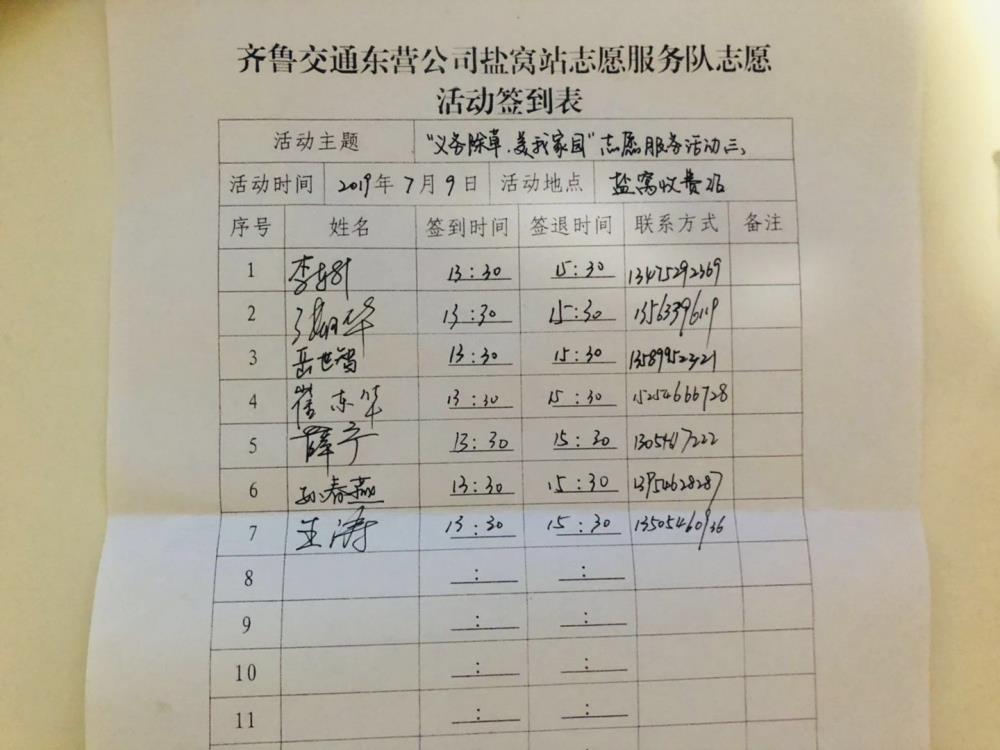 齐鲁交通东营公司盐窝站志愿服务队志愿
活动签到表
活动主题 "义务除草、美我家园"志愿服务活动三、
活动时间 2019年7月9日 活动地点 盐窝收费站
序号 姓名 签到时间 签退时间 联系方式 备注
1 13:30 15:30 13475292369
2 13:30 15:30
3 岳世智 13:30 15:30
4 崔东华 13:30 15:30 15254666728
5 薛宁 13:30 15:30
6 孙春燕 13:30 15:30 13954628287
7 王涛 13:30 15:30 13505460936
8 : :
9 : :
10 : :
11 : :